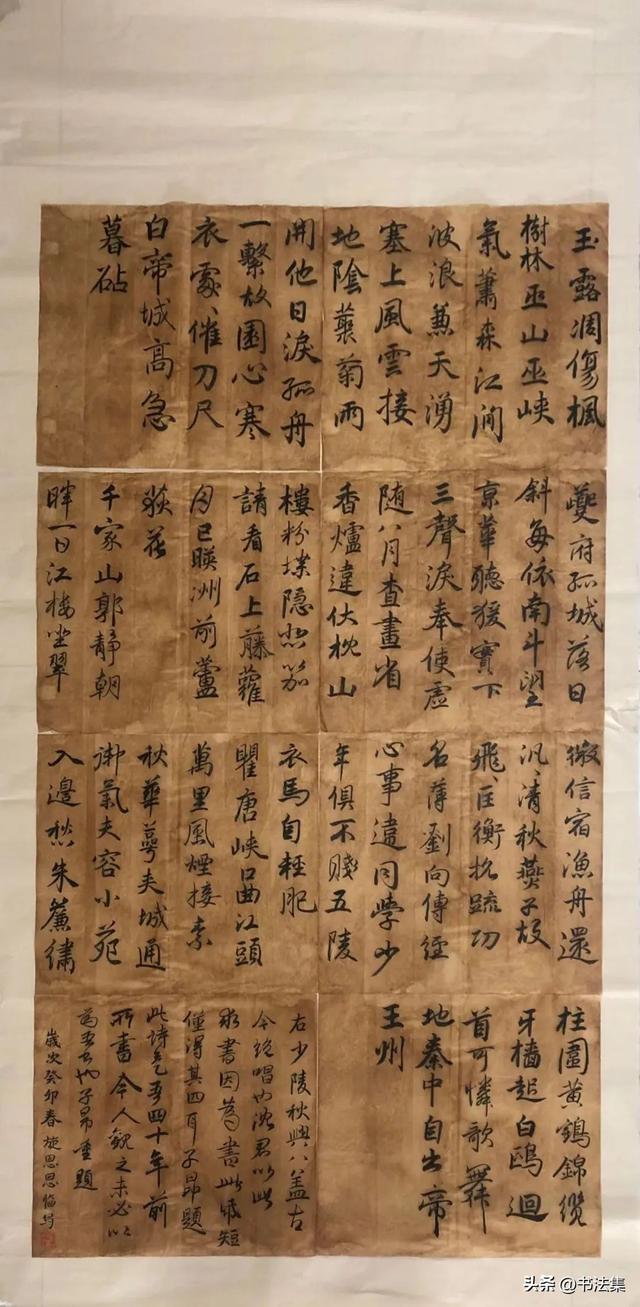 玉露凋傷楓
樹林巫山巫峽
氣蕭森江間
波浪兼天湧
塞上風雲接
地陰藂菊兩
開他日淚孤舟
一繫故園心寒
衣處、催刀尺
白帝城高急
暮砧
夔府孤城落日
斜每依南斗望
京華聽猨實下
三聲淚奉使虛
随八月查畫省
香爐違伏枕山
樓粉堞隐悲笳
請看石上藤蘿
月已暎洲前蘆
荻花
千家山郭靜朝
暉一日江樓坐翠
微信宿漁舟還
汎、清秋燕子故
飛、匡衡抗疏功
名薄劉向傳經
心事違同學少
年俱不賤五陵
衣馬自輕肥
瞿唐峽口曲江頭
萬里風煙接素
秋華萼夫城通
御氣夫容小苑
入邊愁朱簾繡
柱圍黃鶴錦纜
牙檣起白鷗迴
首可憐歌舞
地秦中自古帝
王州
右少陵秋興八盖古
今絶唱也沈君以此
求書因為書此紙短
僅得其四耳子昂題
此詩是吾四十年前
所書今人觀之未必以
為吾書也子昂重題
歲次癸卯春施思恩臨書
头条 @书法集